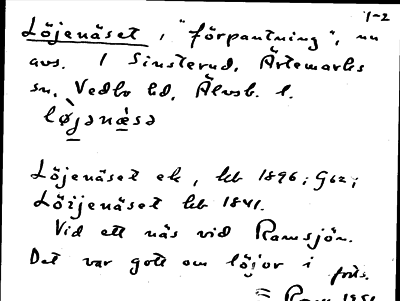 1-2
Löjenäset, "förpantning", nu
avs. / Sinsterud, Ärtemarks
sn, Vedbo hd, Älvsb. l.
lø̀jənæ̀sə
Löjenäset ek, kb 1896; Gbz;
Löijenäset kb 1841.
Vid ett näs vid Ramsjön.
Det var gott om löjor i
forts.